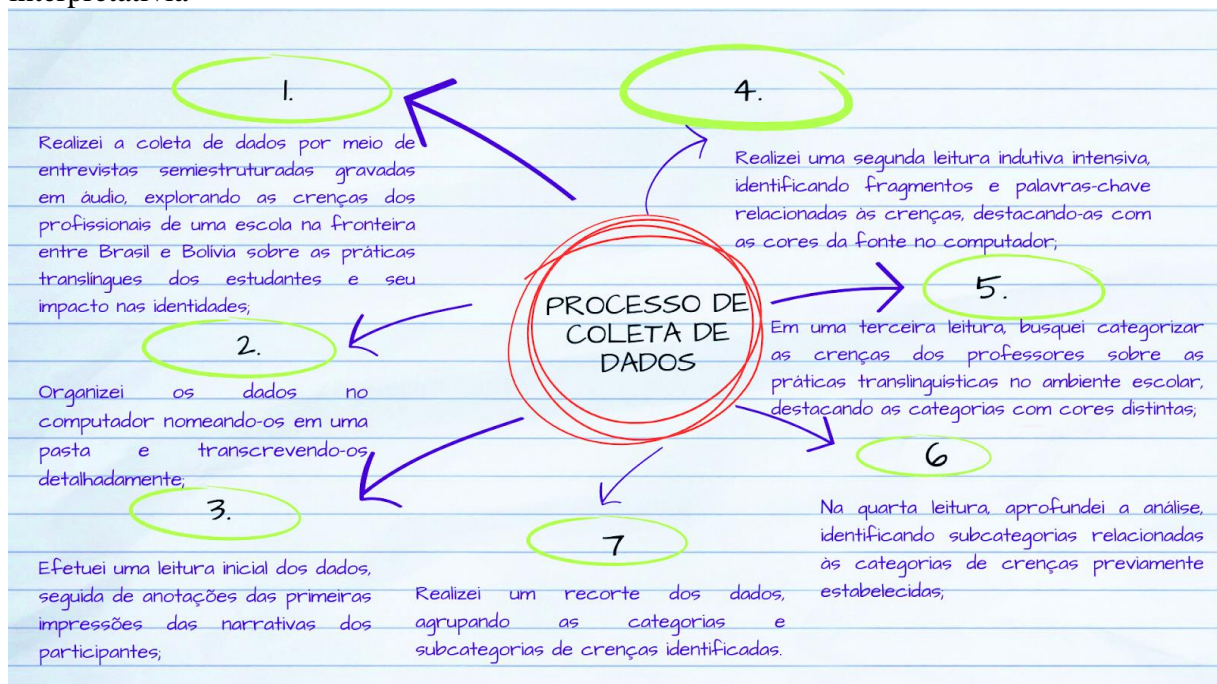 1.
Realizei a coleta de dados por meio de
entrevistas semiestruturadas gravadas
em áudio, explorando as crenças dos
profissionais de uma escola na fronteira
entre Brasil e Bolívia sobre as práticas
translíngues dos estudantes e seu
impacto nas identidades;
2.
Organizei os dados no
computador nomeando-os em uma
pasta e transcrevendo-os
detalhadamente;
3.
Efetuei uma leitura inicial dos dados,
seguida de anotações das primeiras
impressões das narrativas dos
participantes;
PROCESSO DE
COLETA DE
DADOS
4.
Realizei uma segunda leitura indutiva intensiva,
identificando fragmentos e palavras-chave
relacionadas às crenças, destacando-as com
as cores da fonte no computador;
5.
Em uma terceira leitura, busquei categorizar
as crenças dos professores sobre as
práticas translinguísticas no ambiente escolar,
destacando as categorias com cores distintas;
6
Na quarta leitura, aprofundei a análise,
identificando subcategorias relacionadas
às categorias de crenças previamente
estabelecidas;
7
Realizei um recorte dos dados,
agrupando as categorias e
subcategorias de crenças identificadas.